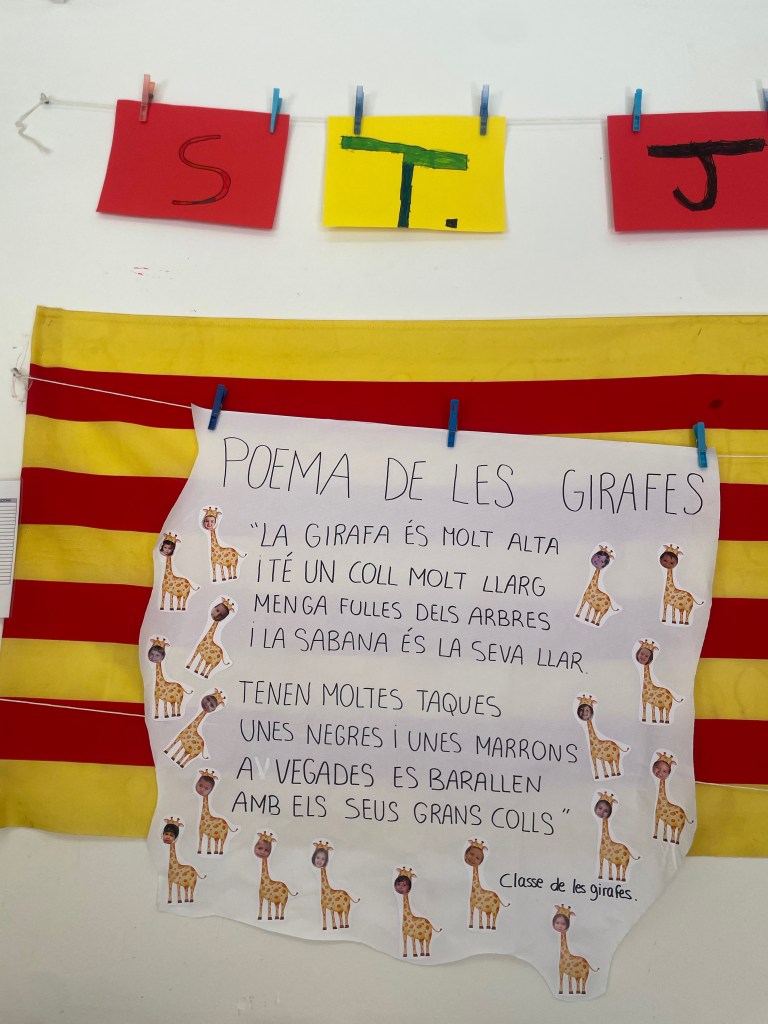 S T. J
POEMA DE LES GIRAFES
"LA GIRAFA ÉS MOLT ALTA
I TÉ UN COLL MOLT LLARG
MENGA FULLES DELS ARBRES
I LA SABANA ÉS LA SEVA LLAR.
TENEN MOLTES TAQUES
UNES NEGRES I UNES MARRONS
A VEGADES ES BARALLEN
AMB ELS SEUS GRANS COLLS"
Classe de les girafes.